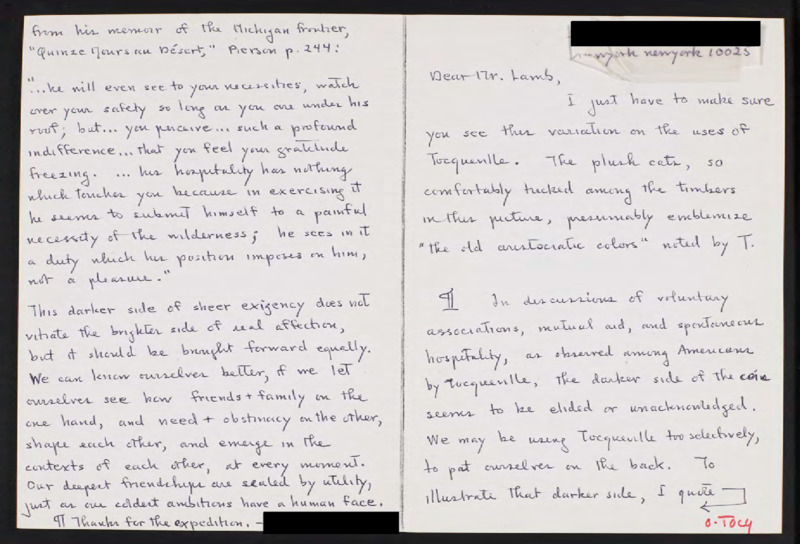 newyork newyork 10025
Dear Mr. Lamb,
I just have to make sure
you see this variation on the uses of
Tocqueville. The plush cats, so
comfortably tucked among the timbers
in this picture, presumably emblemize
"the old aristocratic colors" noted by T.
¶ In discussions of voluntary
associations, mutual aid, and spontaneous
hospitality, as observed among Americans
by Tocqueville, the darker side of the coin
seems to be elided or unacknowledged.
We may be using Tocqueville too selectively,
to pat ourselves on the back. To
illustrate that darker side, I quote
O-TOCQ
from his memoir of the Michigan frontier,
"Quinze Jours au Désert," Pierson p. 244:
"...he will even see to your necessities, watch
over your safety so long as you are under his
roof; but... you perceive... such a profound
indifference... that you feel your gratitude
freezing. ... his hospitality has nothing
which touches you because in exercising it
he seems to submit himself to a painful
necessity of the wilderness; he sees in it
a duty which his position imposes on him,
not a pleasure."
This darker side of sheer exigency does not
vitiate the brighter side of real affection,
but it should be brought forward equally.
We can know ourselves better, if we let
ourselves see how friends + family on the
one hand, and need + obstinacy on the other,
shape each other, and emerge in the
contexts of each other, at every moment.
Our deepest friendships are sealed by utility,
just as our coldest ambitions have a human face.
¶ Thanks for the expedition. —